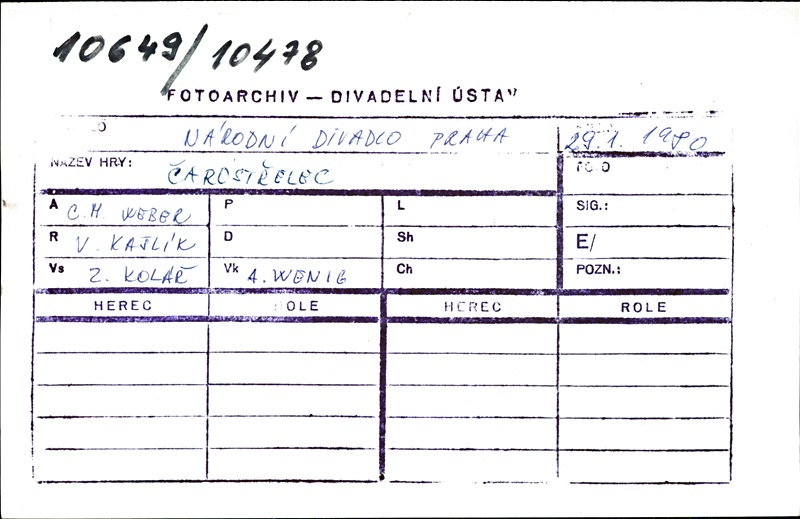 10649/10478
FOTOARCHIV — DIVADELNÍ ÚSTAV
NÁRODNÍ DIVADLO PRAHA 29.1. 1980
NÁZEV HRY: ČAROSTŘELEC FOTO
A C. M. WEBER P L SIG.:
R V. KAŠLÍK D Sh E/
Vs Z. KOLÁŘ Vk A. WENIG Ch POZN.:
HEREC ROLE HEREC ROLE